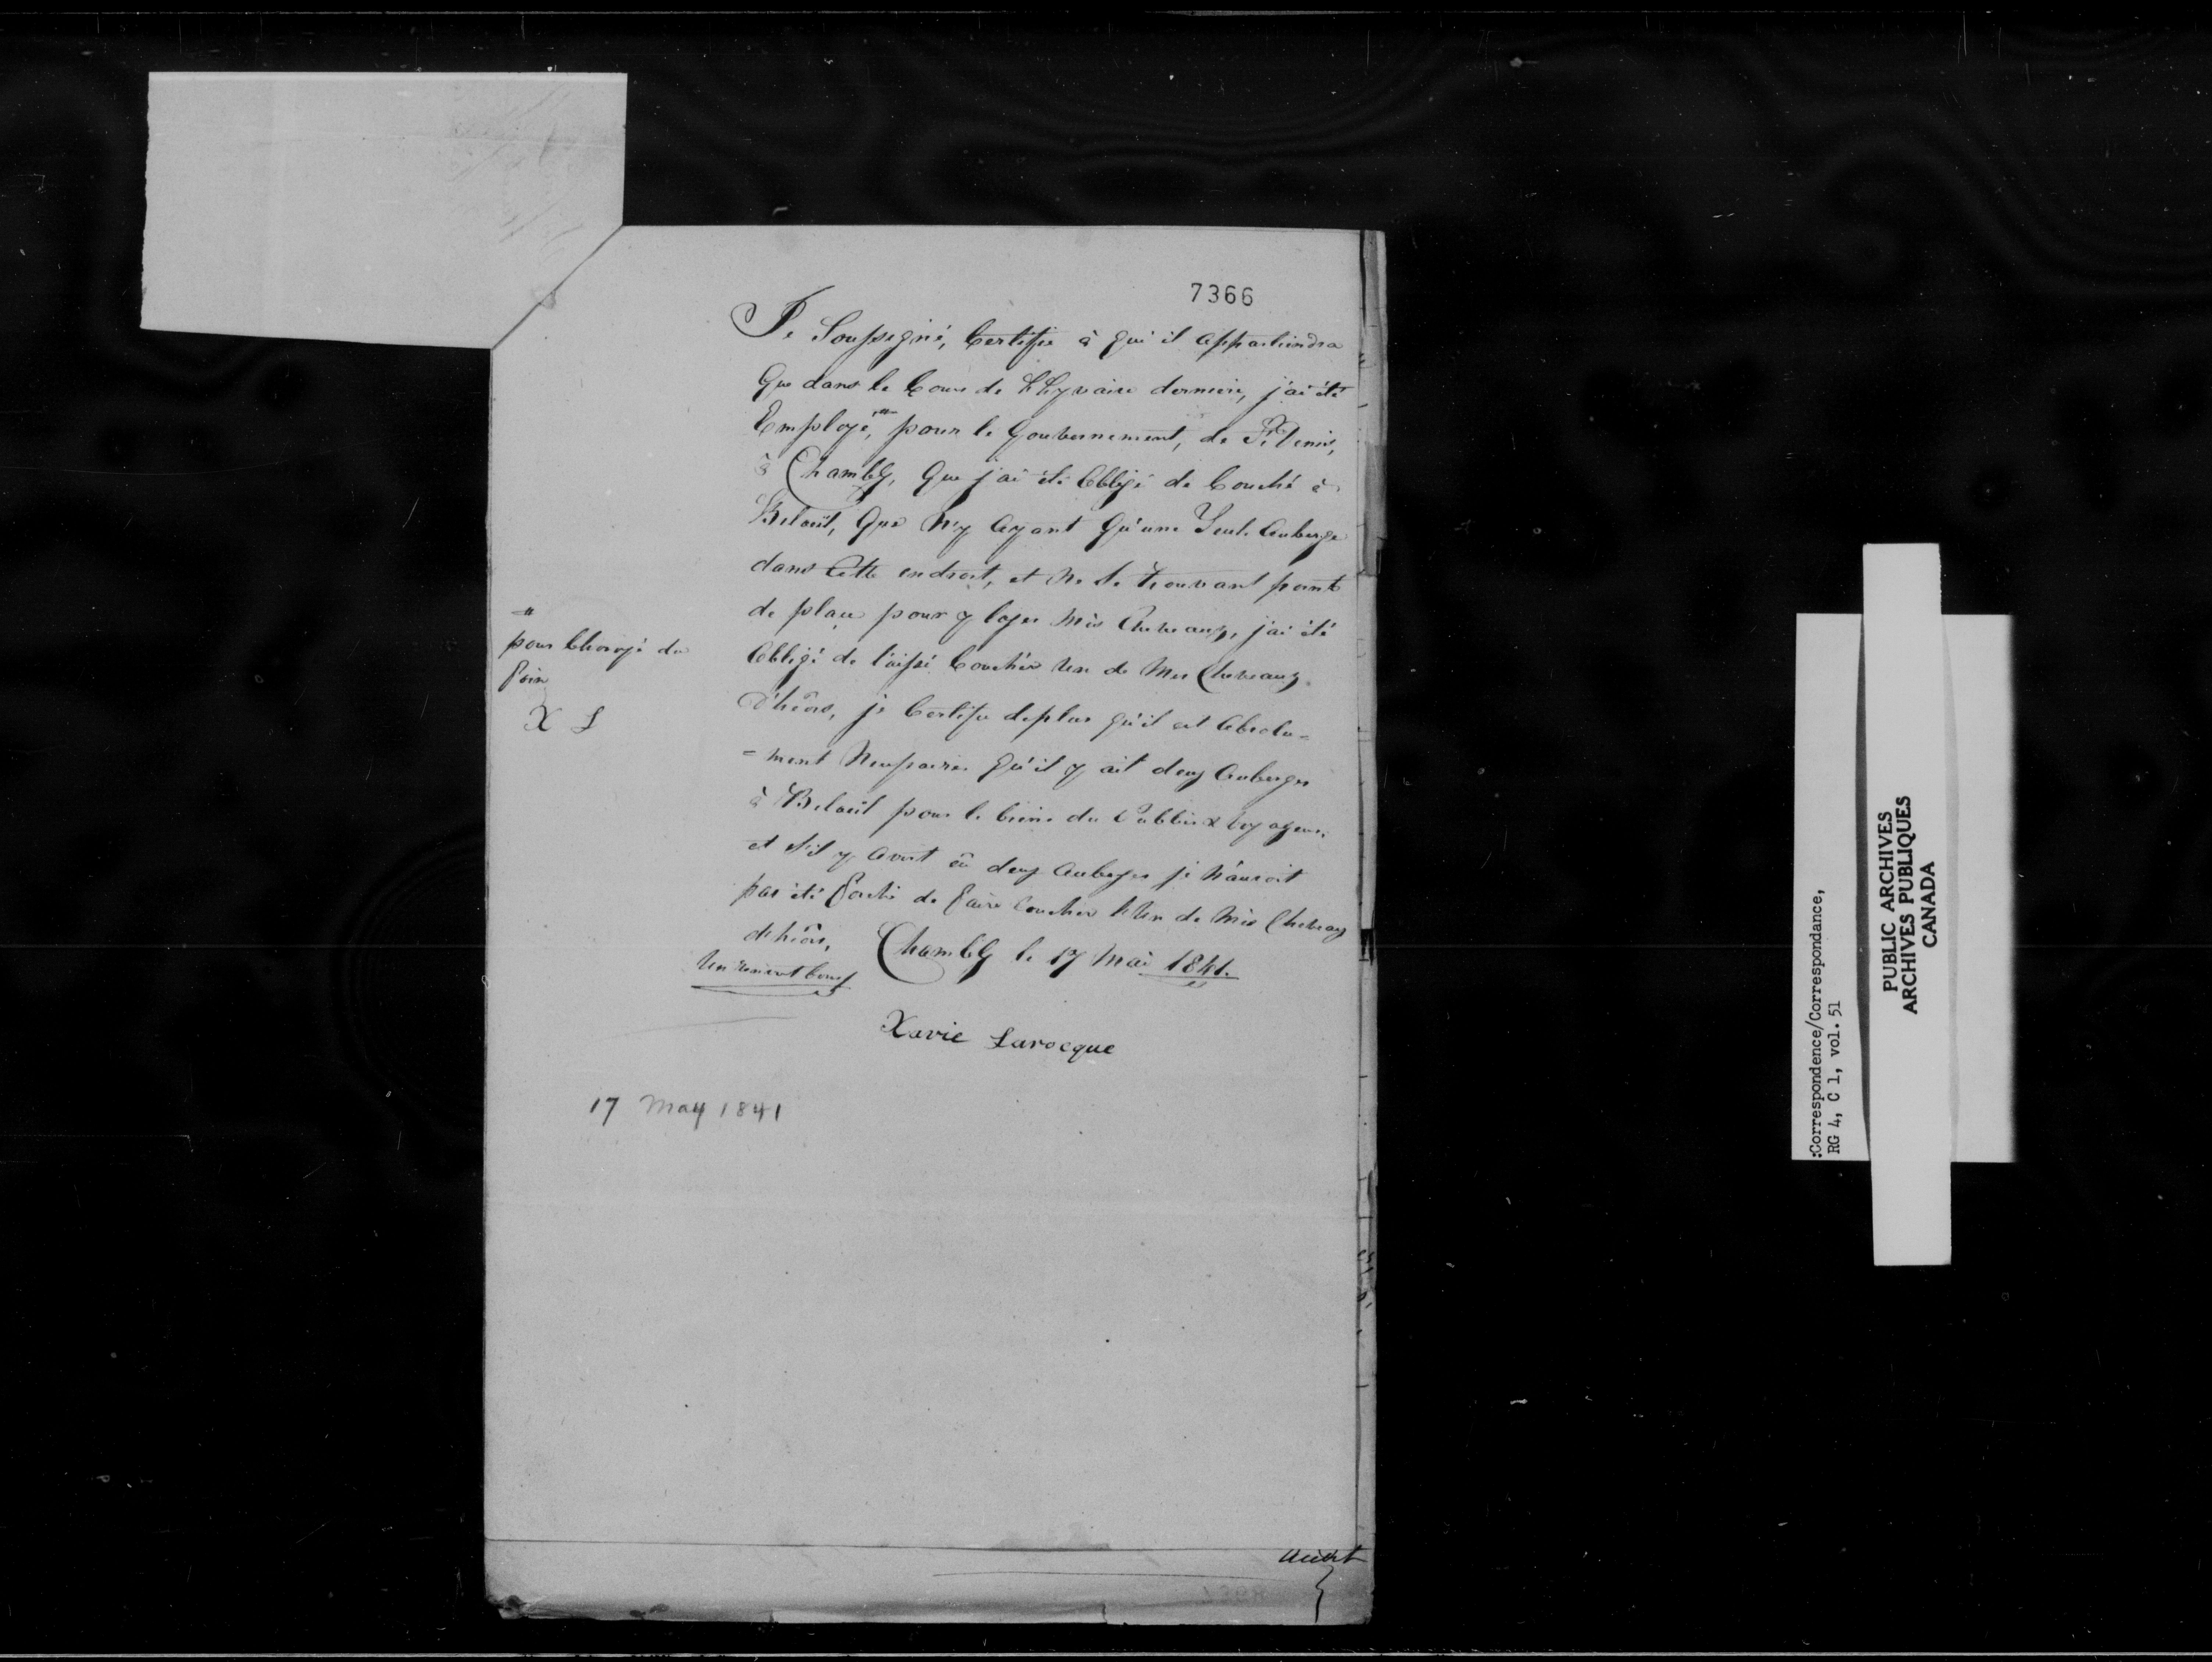 7366
Je Soussigné, Certifie à qui il appartiendra
Que dans le Cour de L'hyvaire dernière, j'ai été
Employé, # pour le Gouvernement, de St Denis,
à Chambly, Que j'ai été Obligé de Couché à
Belœil, Que N'y Ayant Qu'une Seule Auberge
dans Cette endroit, et Ne Se trouvant point
de place pour y loger Mes Chevaux, j'ai été
Obligé de l'aissé Couchér Un de Mes Chevaux
D'héors, je Certifie deplus qu'il est Absolu=
=ment Nessaire qu'il y ait deux Auberges
à Belœil pour le bien du Publice & Voyageur,
et s'il y Avoit eû deux Auberges je N'auroit
pas été forcé de faire Coucher Un de Mes Chevaux
dehéors,
Chambly le 17 Mai 1841.
Un renvoit bon
#
pour Charoyé du
foin
X L
Xavie Larocque
17 May 1841
:Correspondence/Correspondance,
RG 4, C 1, vol. 51
PUBLIC ARCHIVES
ARCHIVES PUBLIQUES
CANADA